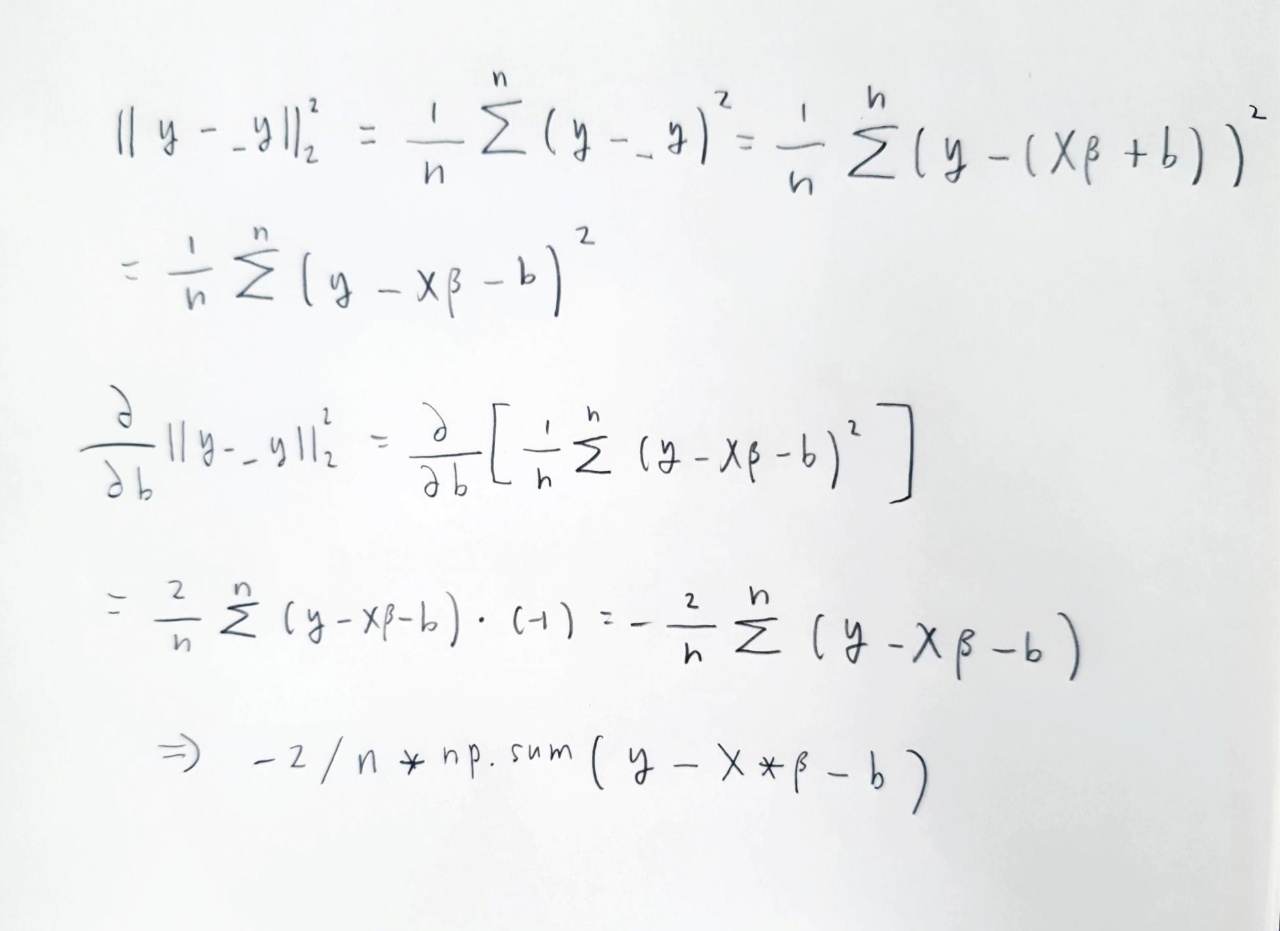 ‖y - _y‖₂² = 1/n Σⁿ (y - _y)² = 1/n Σⁿ (y - (Xβ + b))²
= 1/n Σⁿ (y - Xβ - b)²
∂/∂b ‖y - _y‖₂² = ∂/∂b [1/n Σⁿ (y - Xβ - b)²]
= 2/n Σⁿ (y - Xβ - b) · (-1) = - 2/n Σⁿ (y - Xβ - b)
⇒ -2/n * np.sum(y - X*β - b)